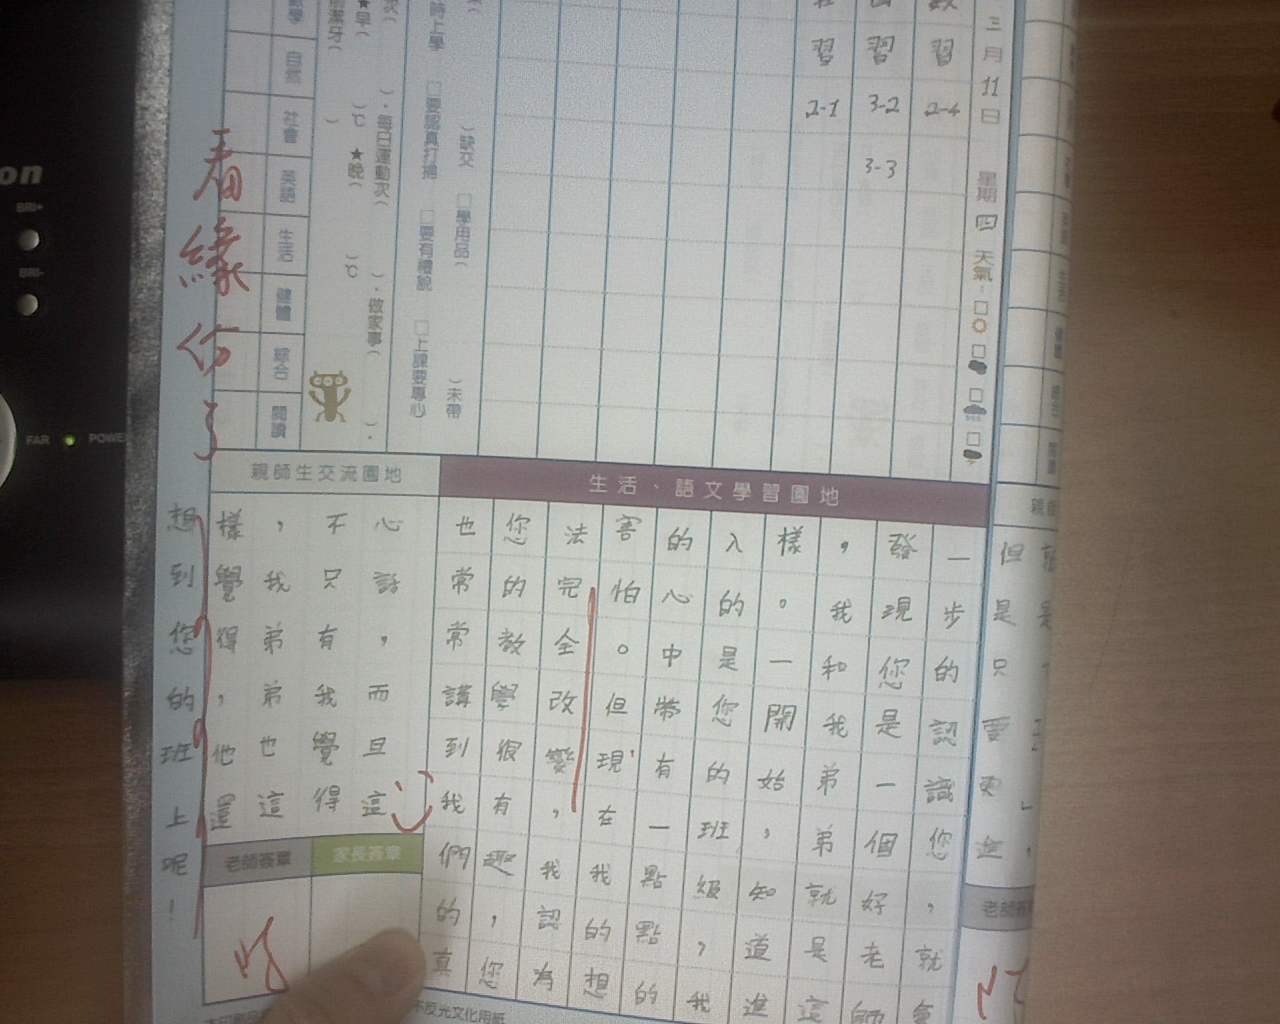 三月11日 星期四 天氣：
習 2-4
習 3-2 3-3
習 2-1
)缺交 □學用品( )未帶
時上學 □要認真打掃 □要有禮貌 □上課要專心
)・每日運動次( )・做家事( )・
★早( )℃ ★晚( )℃
潔牙( )
自然 社會 英語 生活 健體 綜合 閱讀
生活、語文學習園地
但是只要更進，
一步的認識您，就會
發現您是一個好老師
，我和我弟弟就是這
樣。一開始，知道進
入的是您的班級，我
的心中帶有一點點的
害怕。但現在我的想
法完全改變，我認為
您的教學很有趣，您
也常常講到我們的真
親師生交流園地
心話，而且這
不只有我覺得
，我弟弟也這
樣覺得，他還
想到您的班上呢！
看緣份了
家長簽章
老師簽章
不反光文化用紙
BRI+
BRI-
FAR
POWE
on